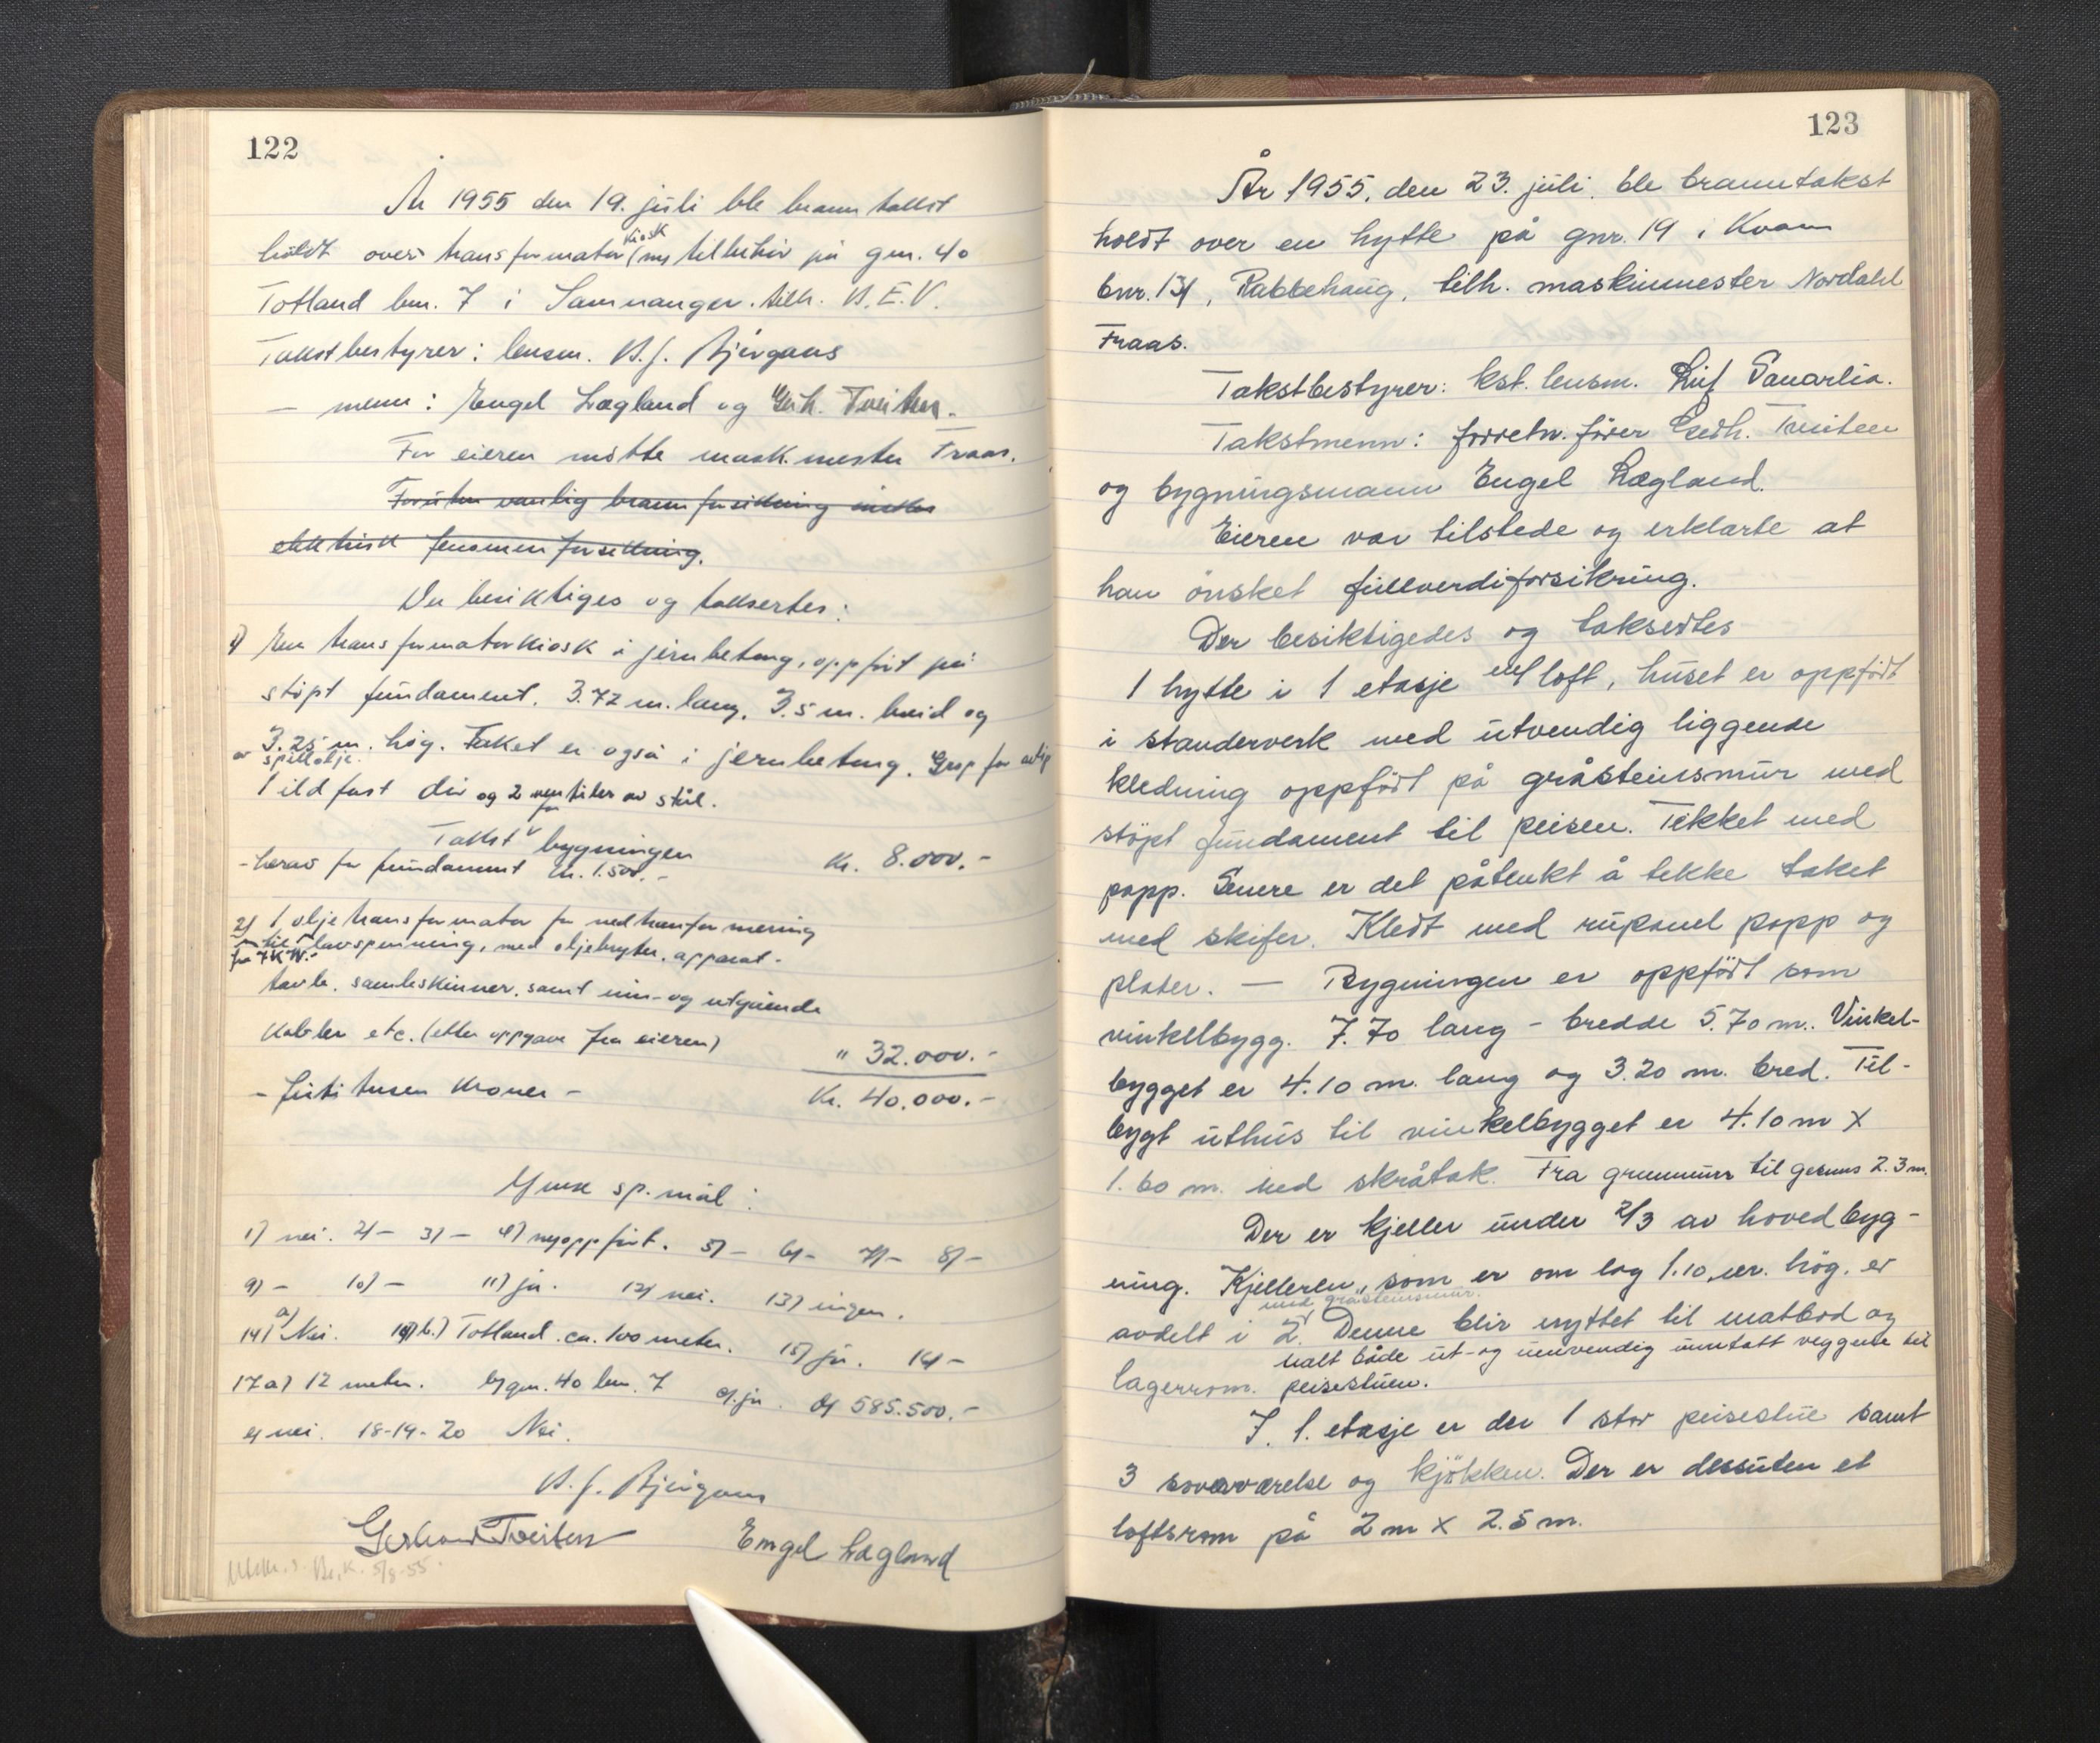 122
År 1955 den 19. juli ble branntakst
holdt over transformatorkiosk m/ tilbehør på gnr. 40
Totland bnr. 7 i Samnanger. tilh. B.E.V.
Takstbestyrer: lensm.
— menn: Engel Lægland og Gerh. Tveiten.
For eieren møtte mask.mester Fraas.
Foruten vanlig brannforsikring
elektrisk fenomenforsikring.
Der besiktiges og takseres:
1) En transformatorkiosk i jernbetong, oppført på
støpt fundament. 3.72 m. lang, 3.5 m. breid og
3.25 m. høg. Taket er også i jernbetong. Grop for
av spillolje.
1 ildfast dør og 2 ventiler av stål.
Takst for bygningen Kr. 8.000.-
- herav for fundament kr. 1.500.-
2) 1 oljetransformator for nedtransformering
fra 7 K.W. til lavspenning, med oljebryter, apparat-
tavle, samleskinner, samt inn- og utgående
kabler etc. (etter oppgave fra eieren) " 32.000.-
- førti tusen kroner - Kr. 40.000.-
sp.mål:
1) nei. 2) — 3) — 4) nyoppført. 5) — 6) — 7) — 8) —
9) — 10) — 11) ja. 12) nei. 13) ingen.
14) a) Nei. 14) b.) Totland. ca. 100 meter. 15) ja. 16) —
17 a) 12 meter. b) gnr. 40 bnr. 7 c). ja. d) 585.500.-
e) nei. 18-19-20 Nei.
Gerhard Tveiten Engel Lægland
5/8-55.
123
År 1955, den 23. juli. ble branntakst
holdt over en hytte på gnr. 19 i Kvam
bnr. 131, Rabbehaug, tilh. maskinmester Nordahl
Fraas.
Takstbestyrer: kst. lensm. Leif
Takstmenn: forretn. fører Gerh. Tveiten
og bygningsmann Engel Lægland.
Eieren var tilstede og erklarte at
han ønsket fullverdiforsikring.
Der besiktigedes og taksertes
1 hytte i 1 etasje m/ loft, huset er oppført
i standerverk med utvendig liggende
kledning oppført på gråsteinsmur med
støpt fundament til peisen. Tekket med
papp. Senere er det påtenkt å tekke taket
med skifer. Kledt med rupanel papp og
plater. — Bygningen er oppført som
vinkelbygg. 7.70 lang - bredde 5.70 m. Vinkel-
bygget er 4.10 m. lang og 3.20 m. bred. Til-
bygt uthus til vinkelbygget er 4.10 m X
1.60 m. med skråtak. Fra grunnmur til gesims 2.3 m.
Der er kjeller under 2/3 av hovedbyg-
ning. Kjelleren, som er om lag 1.10 m. høg. er
med gråsteinsmur.
avdelt i 2. Denne blir nyttet til matbod og
lagerrom. Malt både ut- og innvendig unntatt veggene til
peisestuen.
I. 1. etasje er der 1 stor peisestue samt
3 soveværelse og kjøkken. Der er dessuten et
loftsrom på 2 m x 2.5 m.